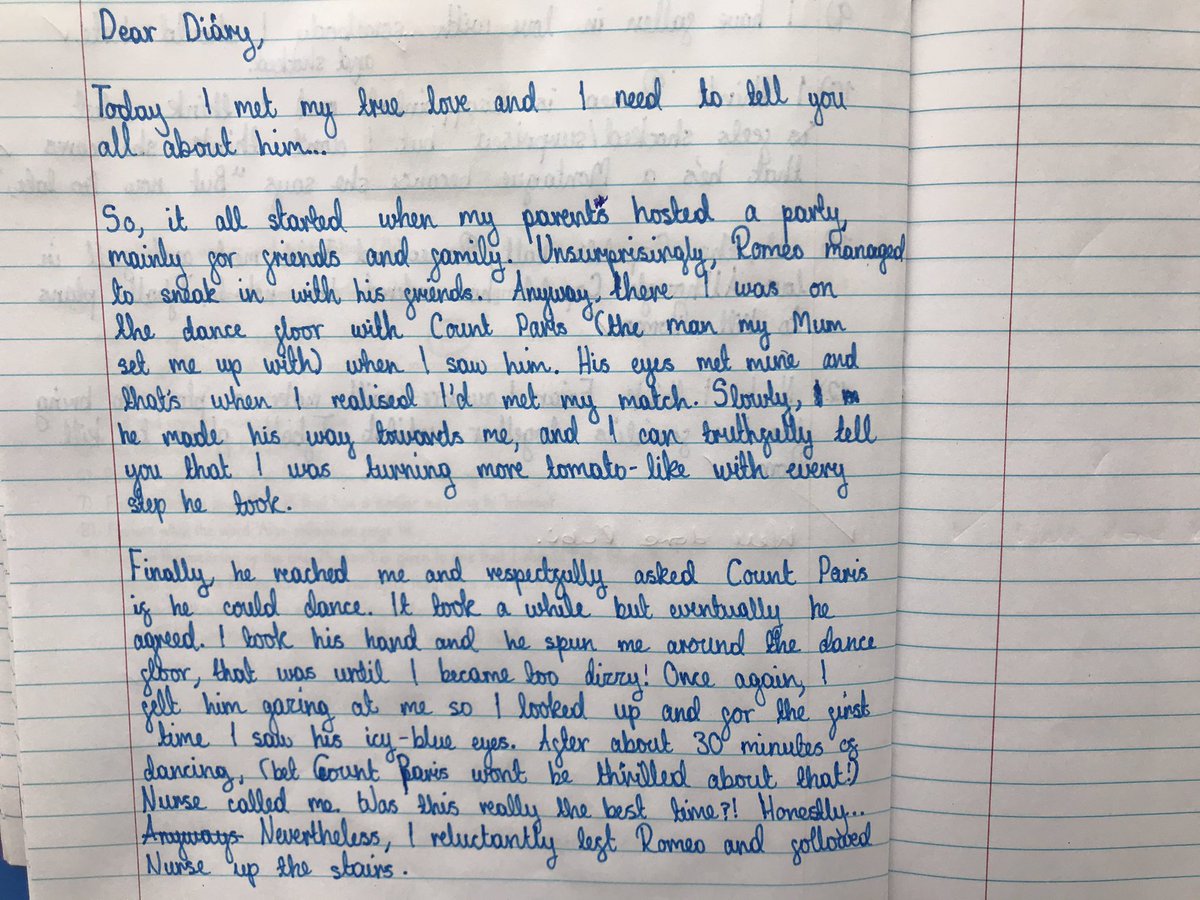 Dear Diary,
Today I met my true love and I need to tell you
all about him...
So, it all started when my parents hosted a party,
mainly for friends and family. Unsurprisingly, Romeo managed
to sneak in with his friends. Anyway, there I was on
the dance floor with Count Paris (the man my Mum
set me up with) when I saw him. His eyes met mine and
that's when I realised I'd met my match. Slowly,
he made his way towards me, and I can truthfully tell
you that I was turning more tomato-like with every
step he took.
Finally, he reached me and respectfully asked Count Paris
if he could dance. It took a while but eventually he
agreed. I took his hand and he spun me around the dance
floor, that was until I became too dizzy! Once again, I
felt him gazing at me so I looked up and for the first
time I saw his icy-blue eyes. After about 30 minutes of
dancing, (bet Count Paris wont be thrilled about that!)
Nurse called me. Was this really the best time?! Honestly...
Anyways Nevertheless, I reluctantly left Romeo and followed
Nurse up the stairs.